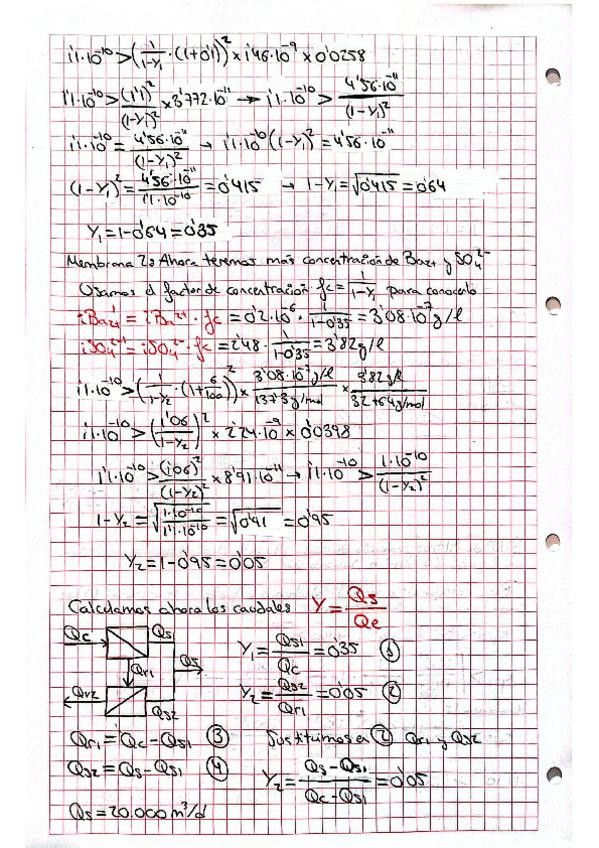 1'1·10⁻¹⁰ > (1/(1-Y₁)·(1+0'1))² × 1'46·10⁻⁹ × 0'0258
1'1·10⁻¹⁰ > (1'1)²/(1-Y₁)² × 3'772·10⁻¹¹ → 1'1·10⁻¹⁰ > 4'56·10⁻¹¹/(1-Y₁)²
1'1·10⁻¹⁰ = 4'56·10⁻¹¹/(1-Y₁)² → 1'1·10⁻¹⁰(1-Y₁)² = 4'56·10⁻¹¹
(1-Y₁)² = 4'56·10⁻¹¹/1'1·10⁻¹⁰ = 0'415 → 1-Y₁ = √0'415 = 0'64
Y₁ = 1-0'64 = 0'35
Membrana 2: Ahora tenemos más concentración de Ba²⁺ y SO₄²⁻
Usamos el factor de concentración fc = 1/(1-Y₁) para conocerlo
¡Ba²⁺¡' = ¡Ba²⁺¡·fc = 0'2·10⁻⁶· 1/(1-0'35) = 3'08·10⁻⁷ g/l
¡SO₄²⁻¡' = ¡SO₄²⁻¡·fc = 2'48· 1/(1-0'35) = 3'82 g/l
1'1·10⁻¹⁰ > (1/(1-Y₂)·(1+6/100))² × 3'08·10⁻⁷ g/l/137'3 g/mol × 3'82 g/l/32+64 g/mol
1'1·10⁻¹⁰ > (1'06/(1-Y₂))² × 2'24·10⁻⁹ × 0'0398
1'1·10⁻¹⁰ > (1'06)²/(1-Y₂)² × 8'91·10⁻¹¹ → 1'1·10⁻¹⁰ > 1·10⁻¹⁰/(1-Y₂)²
1-Y₂ = √(1·10⁻¹⁰/1'1·10⁻¹⁰) = √0'91 = 0'95
Y₂ = 1-0'95 = 0'05
Calculamos ahora los caudales Y = Qs/Qe
Qc Qs1
Qr1 Qs
Qr2 Qs2
Y₁ = Qs1/Qc = 0'35 ①
Y₂ = Qs2/Qr1 = 0'05 ②
Qr1 = Qc - Qs1 ③ Sustituimos en ② Qr1 y Qs2
Qs2 = Qs - Qs1 ④ Y₂ = (Qs - Qs1)/(Qc - Qs1) = 0'05
Qs = 20.000 m³/d